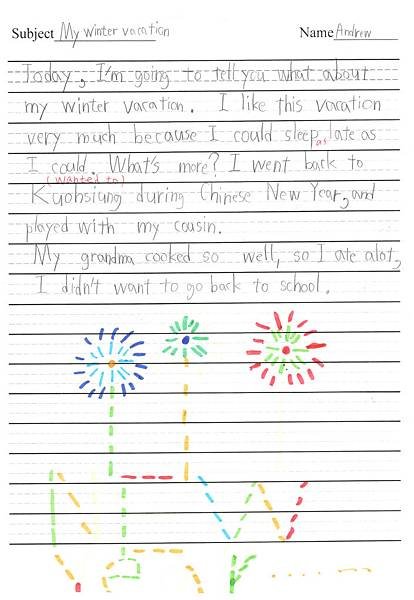 Subject My winter vacation Name Andrew
Today, I'm going to tell you what about
my winter vacation. I like this vacation
very much because I could sleep as late as
I could. What's more? I went back to
(wanted to)
Kuohsiung during Chinese New Year, and
played with my cousin.
My grandma cooked so well, so I ate alot,
I didn't want to go back to school.